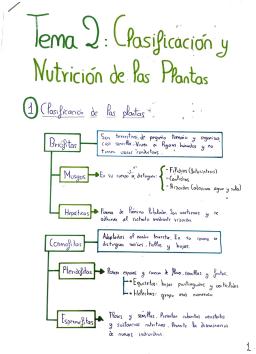 Tema 2: Clasificación y
Nutrición de las Plantas
1 Clasificación de las plantas
Briofitas
Son terrestres, de pequeño tamaño y organización sencilla. Viven en lugares húmedos y no tienen vasos conductores.
Musgos
En su cuerpo se distinguen:
- Filidios
- Cauloides
- Rizoides (absorben agua y sales)
Hepáticas
Forma de lámina lobulada. Son verdosas y se adhieren al sustrato mediante rizoides.
Cormofitas
Adaptadas al medio terrestre. En su cormo se distinguen raíces, tallos y hojas.
Pteridofitas
Poseen esporas y carecen de flores, semillas y frutos.
Helechos: grupo más numeroso
Espermafitas
Flores y semillas. Presentan cubiertas resistentes y sustancias nutritivas. Permite la diseminación de nuevos individuos.
1